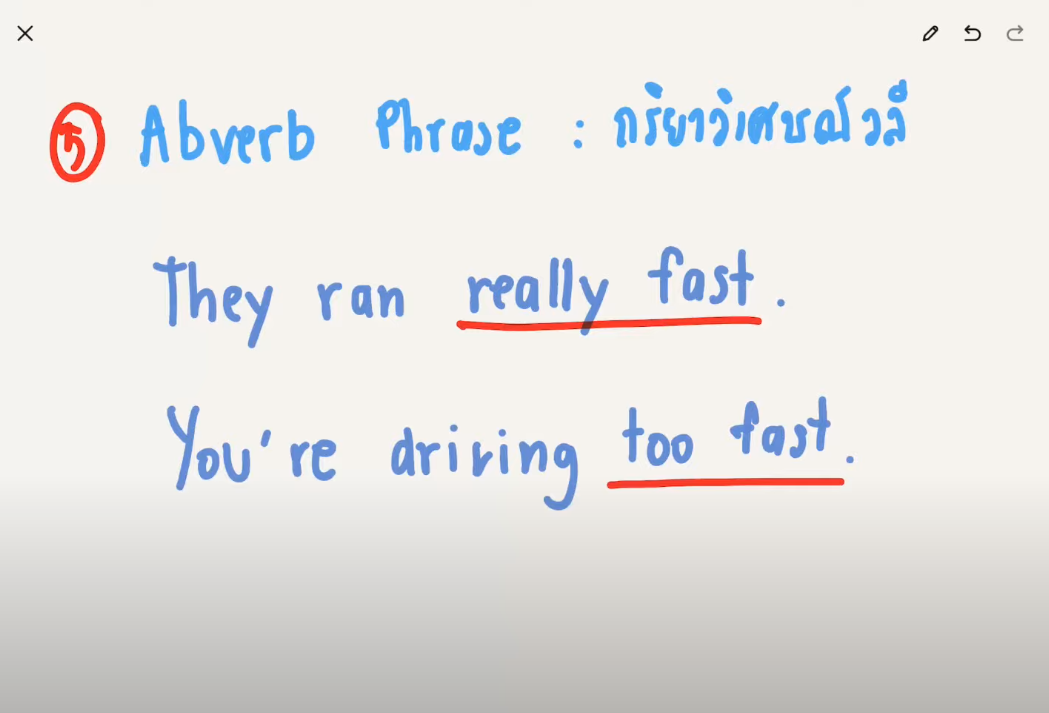 5 Abverb Phrase : กริยาวิเศษณ์วลี
They ran really fast.
You're driving too fast.